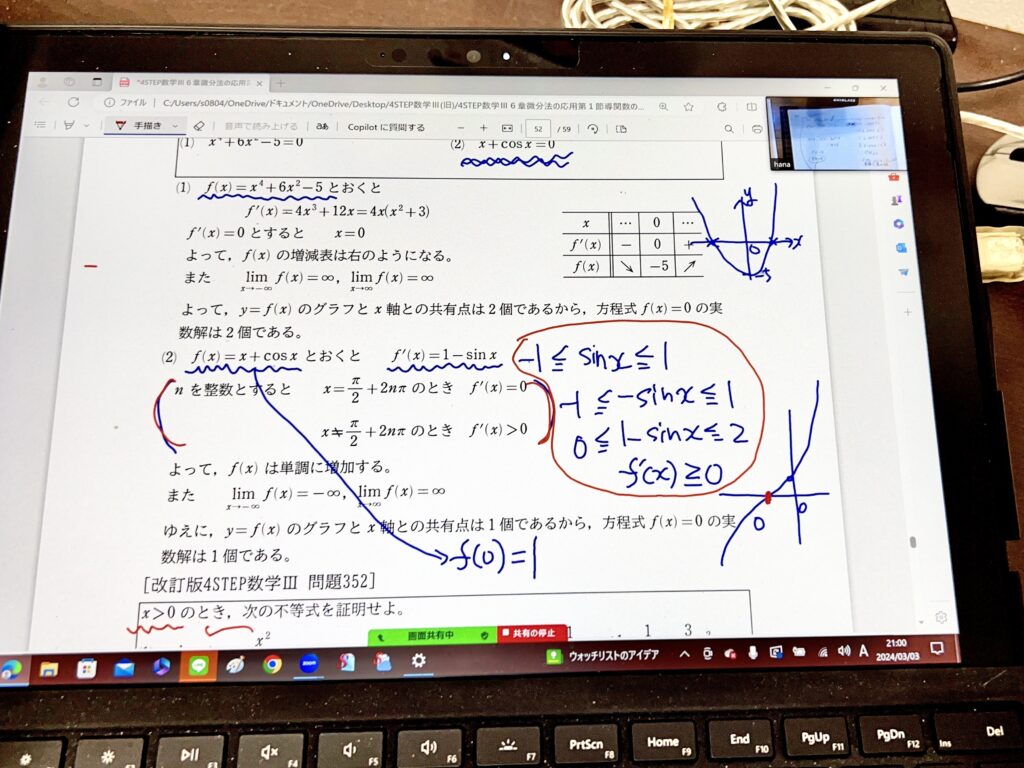 *4STEP数学Ⅲ 6 章微分法の応用
ファイル C:/Users/s0804/OneDrive/ドキュメント/OneDrive/Desktop/4STEP数学Ⅲ(旧)/4STEP数学Ⅲ 6 章微分法の応用第 1 節導関数の...
手描き 音声で読み上げる Copilot に質問する 52 / 59
hana
(1) x⁴+6x²−5=0 (2) x+cosx=0
(1) f(x)=x⁴+6x²−5 とおくと
f'(x)=4x³+12x=4x(x²+3)
f'(x)=0 とすると x=0
よって，f(x) の増減表は右のようになる。
また lim x→−∞ f(x)=∞，lim x→∞ f(x)=∞
x … 0 …
f'(x) − 0 +
f(x) ↘ −5 ↗
y
x
0
−5
よって，y=f(x) のグラフと x 軸との共有点は 2 個であるから，方程式 f(x)=0 の実
数解は 2 個である。
(2) f(x)=x+cosx とおくと f'(x)=1−sinx
n を整数とすると x=π/2+2nπ のとき f'(x)=0
x≠π/2+2nπ のとき f'(x)>0
-1≦sinx≦1
-1≦-sinx≦1
0≦1-sinx≦2
f'(x)≧0
よって，f(x) は単調に増加する。
また lim x→−∞ f(x)=−∞，lim x→∞ f(x)=∞
ゆえに，y=f(x) のグラフと x 軸との共有点は 1 個であるから，方程式 f(x)=0 の実
数解は 1 個である。
f(0)=1
0
0
[改訂版4STEP数学Ⅲ 問題352]
x>0 のとき，次の不等式を証明せよ。
x²
1 3
画面共有中 共有の停止
zoom
ウォッチリストのアイデア
A
21:00
2024/03/03
F3
F4
F5
F6
F7
PrtScn F8
Home F9
End F10
PgUp F11
PgDn F12
Ins Del